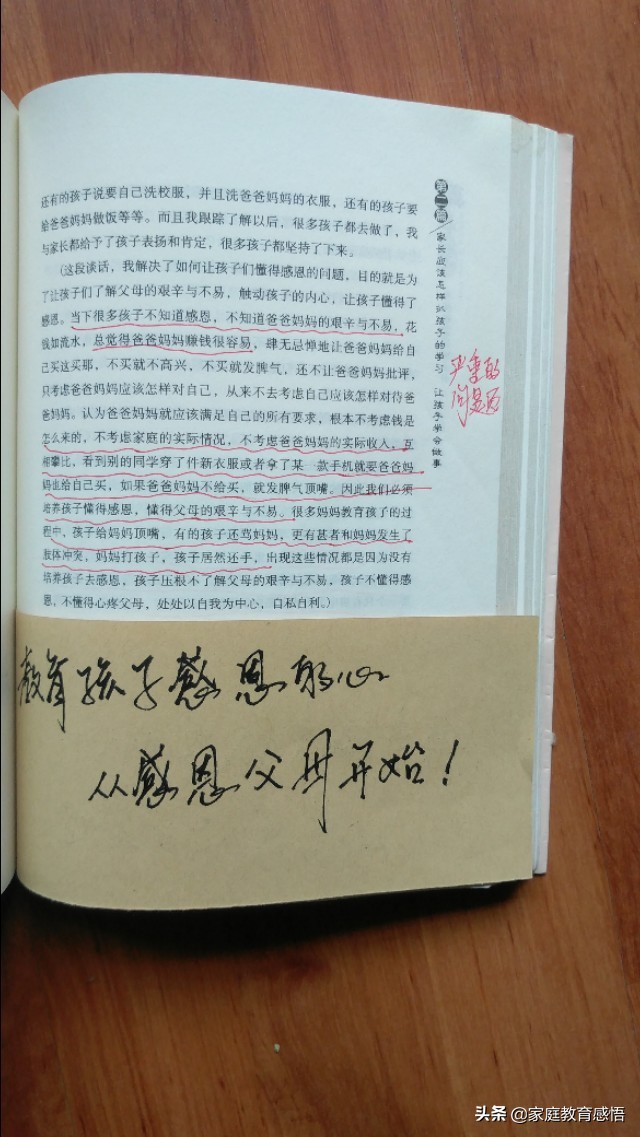 还有的孩子说要自己洗校服，并且洗爸爸妈妈的衣服，还有的孩子要
给爸爸妈妈做饭等等。而且我跟踪了解以后，很多孩子都去做了，我
与家长都给予了孩子表扬和肯定，很多孩子都坚持了下来。
（这段谈话，我解决了如何让孩子们懂得感恩的问题，目的就是为
了让孩子们了解父母的艰辛与不易，触动孩子的内心，让孩子懂得了
感恩。当下很多孩子不知道感恩，不知道爸爸妈妈的艰辛与不易，花
钱如流水，总觉得爸爸妈妈赚钱很容易，肆无忌惮地让爸爸妈妈给自
己买这买那，不买就不高兴，不买就发脾气，还不让爸爸妈妈批评，
只考虑爸爸妈妈应该怎样对自己，从来不去考虑自己应该怎样对待爸
爸妈妈。认为爸爸妈妈就应该满足自己的所有要求，根本不考虑钱是
怎么来的，不考虑家庭的实际情况，不考虑爸爸妈妈的实际收入，互
相攀比，看到别的同学穿了件新衣服或者拿了某一款手机就要爸爸妈
妈也给自己买，如果爸爸妈妈不给买，就发脾气顶嘴。因此我们必须
培养孩子懂得感恩，懂得父母的艰辛与不易。很多妈妈教育孩子的过
程中，孩子给妈妈顶嘴，有的孩子还骂妈妈，更有甚者和妈妈发生了
肢体冲突，妈妈打孩子，孩子居然还手，出现这些情况都是因为没有
培养孩子去感恩，孩子压根不了解父母的艰辛与不易，孩子不懂得感
恩，不懂得心疼父母，处处以自我为中心，自私自利。）
第二篇
家长应该怎样抓孩子的学习 让孩子学会做事
严重的
问题
教育孩子感恩的心
从感恩父母开始！
头条 @家庭教育感悟